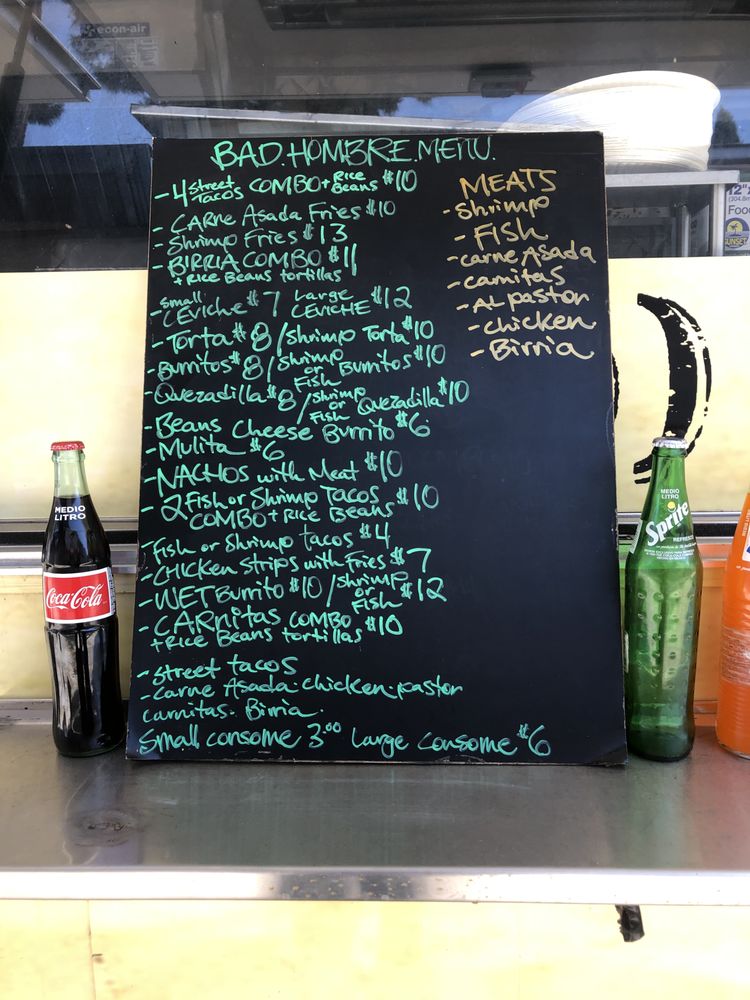 econ-air
BAD.HOMBRE.MENU.
- 4 Street Tacos COMBO + Rice Beans $10
- CARNe Asada Fries $10
- Shrimp Fries $13
- BIRRIA COMBO $11
+ Rice Beans tortillas
- small CEViche $7 Large CEVICHE $12
- Torta $8 / Shrimp Torta $10
- Burritos $8 / Shrimp or Fish Burritos $10
- Quezadilla $8 / Shrimp or Fish Quezadilla $10
- Beans Cheese Burrito $6
- Mulita $6
- NACHOS with Meat $10
- 2 Fish or Shrimp Tacos $10
COMBO + Rice Beans
- Fish or Shrimp tacos $4
- CHICKen Strips with Fries $7
- WET Burrito $10 / Shrimp or Fish $12
- CARnitas COMBO $10
+ Rice Beans tortillas
- Street tacos
- Carne Asada. chicken. pastor
carnitas. Birria.
Small consome 3.00 Large consome $6
MEATS
- Shrimp
- FISH
- carne Asada
- carnitas
- AL pastor
- chicken
- Birria
MEDIO
LITRO
Coca-Cola
MEDIO
LITRO
Sprite
REFRESCO
12"
Foo
SUNSET